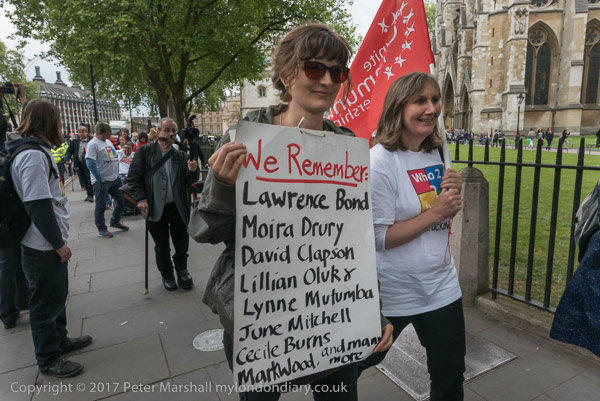 We Remember:
Lawrence Bond
Moira Drury
David Clapson
Lillian Oluk &
Lynne Mutumba
June Mitchell
Cecile Burns
Mark Wood, and many more
unite
community
Who 2
Copyright © 2017 Peter Marshall mylondondiary.co.uk